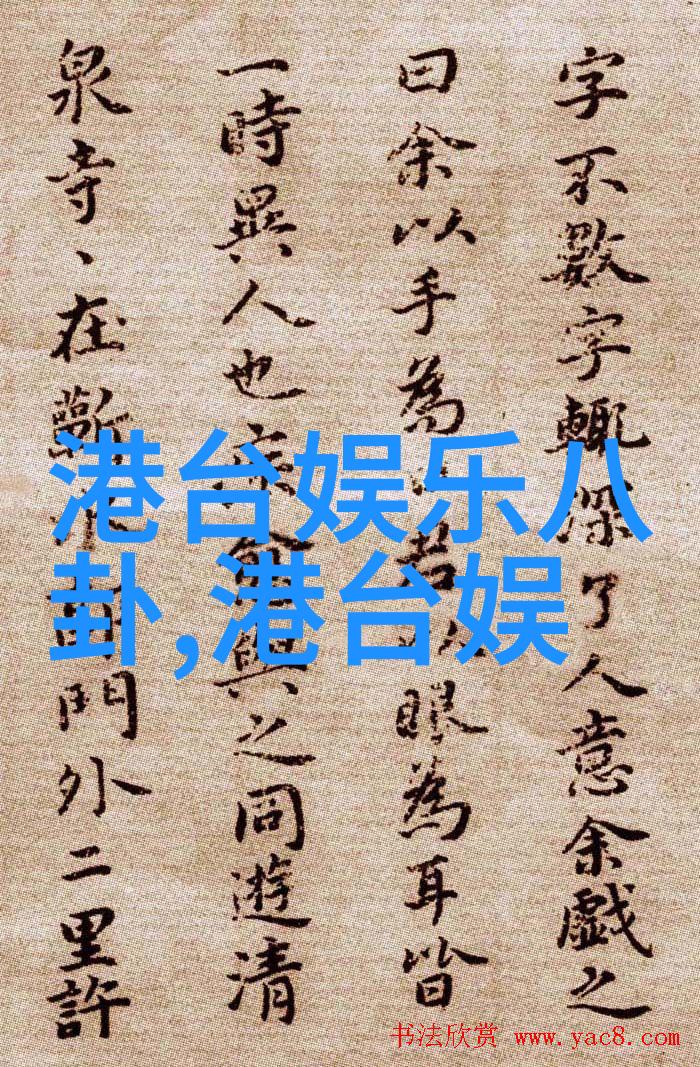 字不數字輙深了人意余戲之
曰余以手為眼為耳皆
一時異人也與之同遊清
泉寺、在蘄門外二里許
港台娱乐八
卦,港台娱
书法欣赏 www.yac8.com